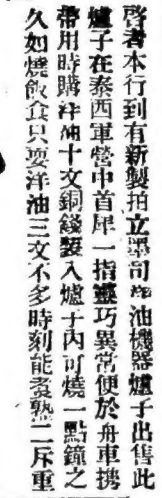 啓者本行到有新製拍立墨司煤油機器爐子出售此
爐子在泰西軍營中首屈一指靈巧異常便於舟車攜
帶用時購洋油十文銅錢裝入爐子內可燒一點鐘之
久如燒飯食只要洋油三文不多時刻能煮熟二斤重